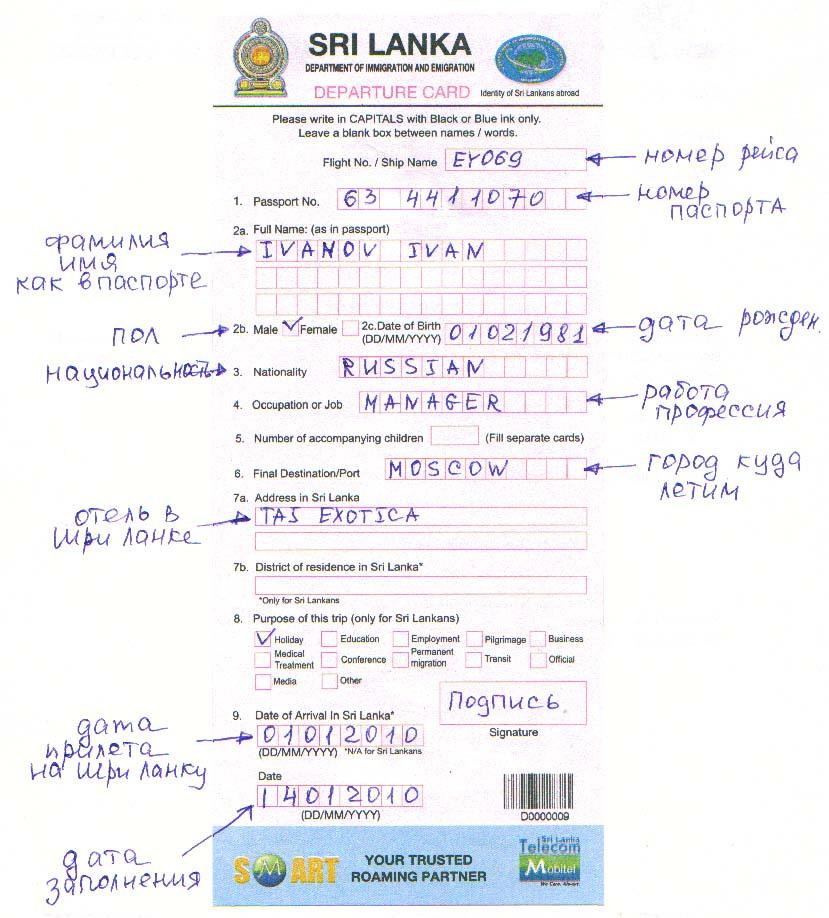 SRI LANKA
DEPARTMENT OF IMMIGRATION AND EMIGRATION
DEPARTURE CARD
Identity of Sri Lankans abroad
Please write in CAPITALS with Black or Blue ink only.
Leave a blank box between names / words.
Flight No. / Ship Name EY069
номер рейса
1. Passport No. 63 4411070
номер
паспорта
2a. Full Name: (as in passport)
IVANOV IVAN
фамилия
имя
как в паспорте
2b. Male Female 2c.Date of Birth
(DD/MM/YYYY) 01021981
пол
дата рожден.
3. Nationality RUSSIAN
национальность
4. Occupation or Job MANAGER
работа
профессия
5. Number of accompanying children (Fill separate cards)
6. Final Destination/Port MOSCOW
город куда
летим
7a. Address in Sri Lanka
TAJ EXOTICA
отель в
Шри Ланке
7b. District of residence in Sri Lanka*
*Only for Sri Lankans
8. Purpose of this trip (only for Sri Lankans)
Holiday Education Employment Pilgrimage Business
Medical Treatment Conference Permanent migration Transit Official
Media Other
Подпись
Signature
9. Date of Arrival In Sri Lanka*
01012010
(DD/MM/YYYY) *N/A for Sri Lankans
дата
прилета
на Шри Ланку
Date
14012010
(DD/MM/YYYY)
D0000009
дата
заполнения
SMART
YOUR TRUSTED
ROAMING PARTNER
Sri Lanka
Telecom
Mobitel
We Care. Always.